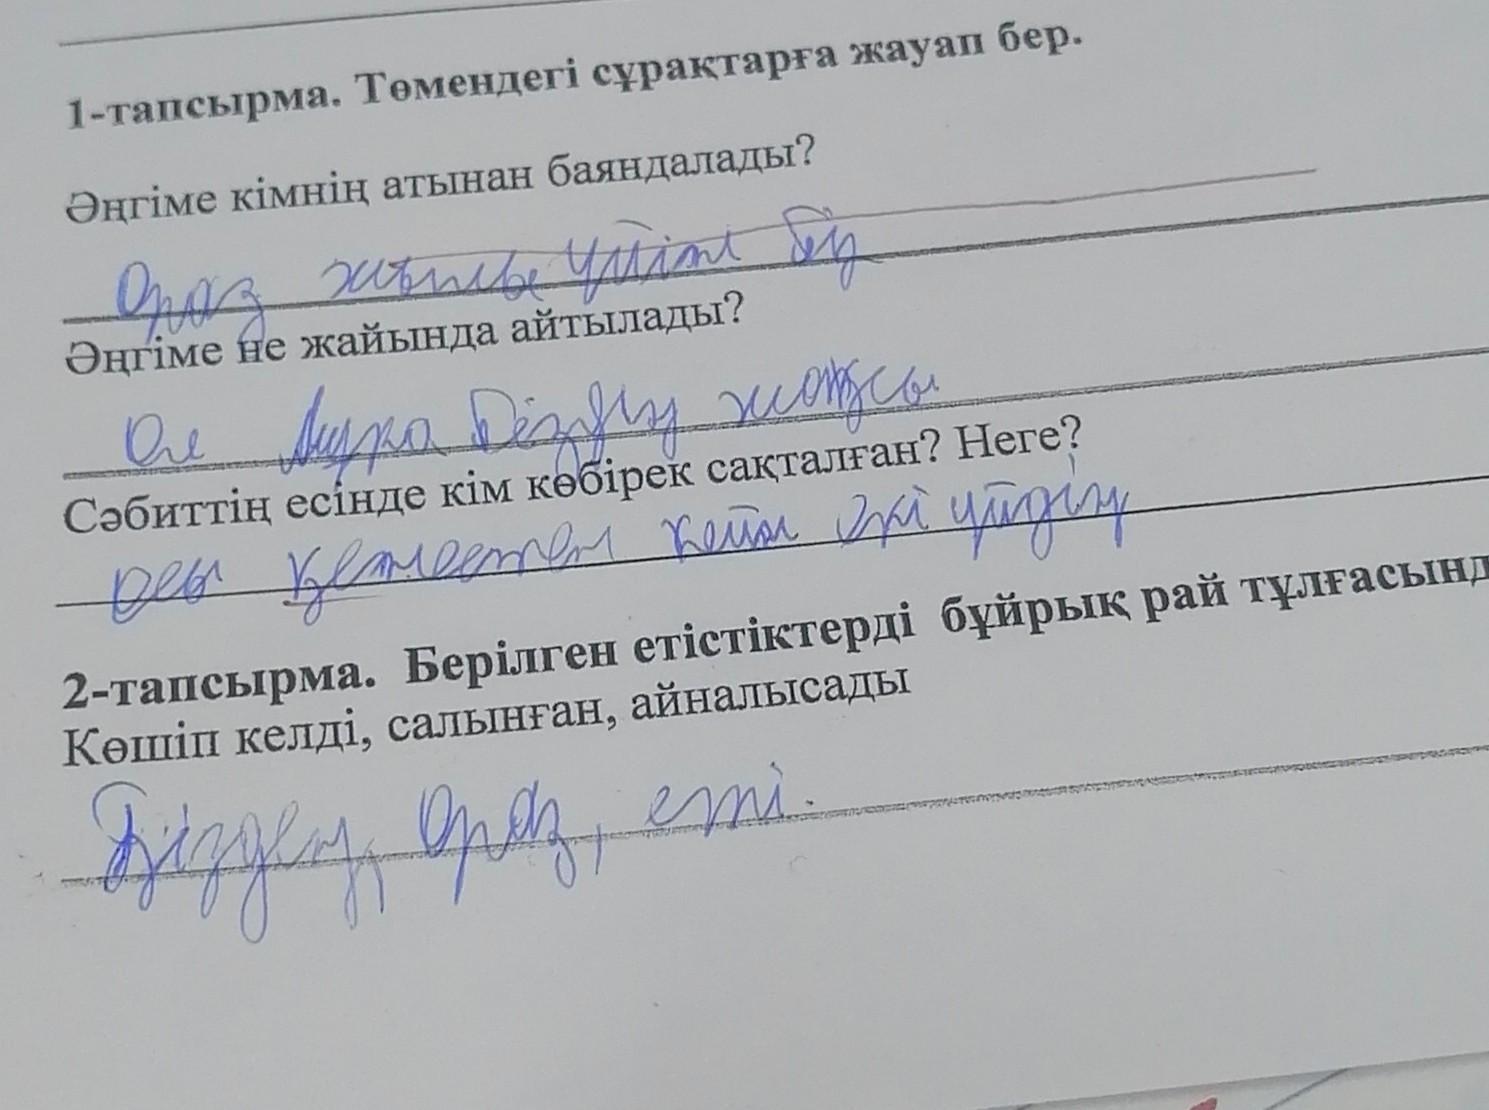 1-тапсырма. Төмендегі сұрақтарға жауап бер.
Әңгіме кімнің атынан баяндалады?
Ораз үйіне біз
Әңгіме не жайында айтылады?
Ол біздің жақсы
Сәбиттің есінде кім көбірек сақталған? Неге?
кейін екі үйдің
2-тапсырма. Берілген етістіктерді бұйрық рай тұлғасынд
Көшіп келді, салынған, айналысады
Біздең, Ораз, еті.